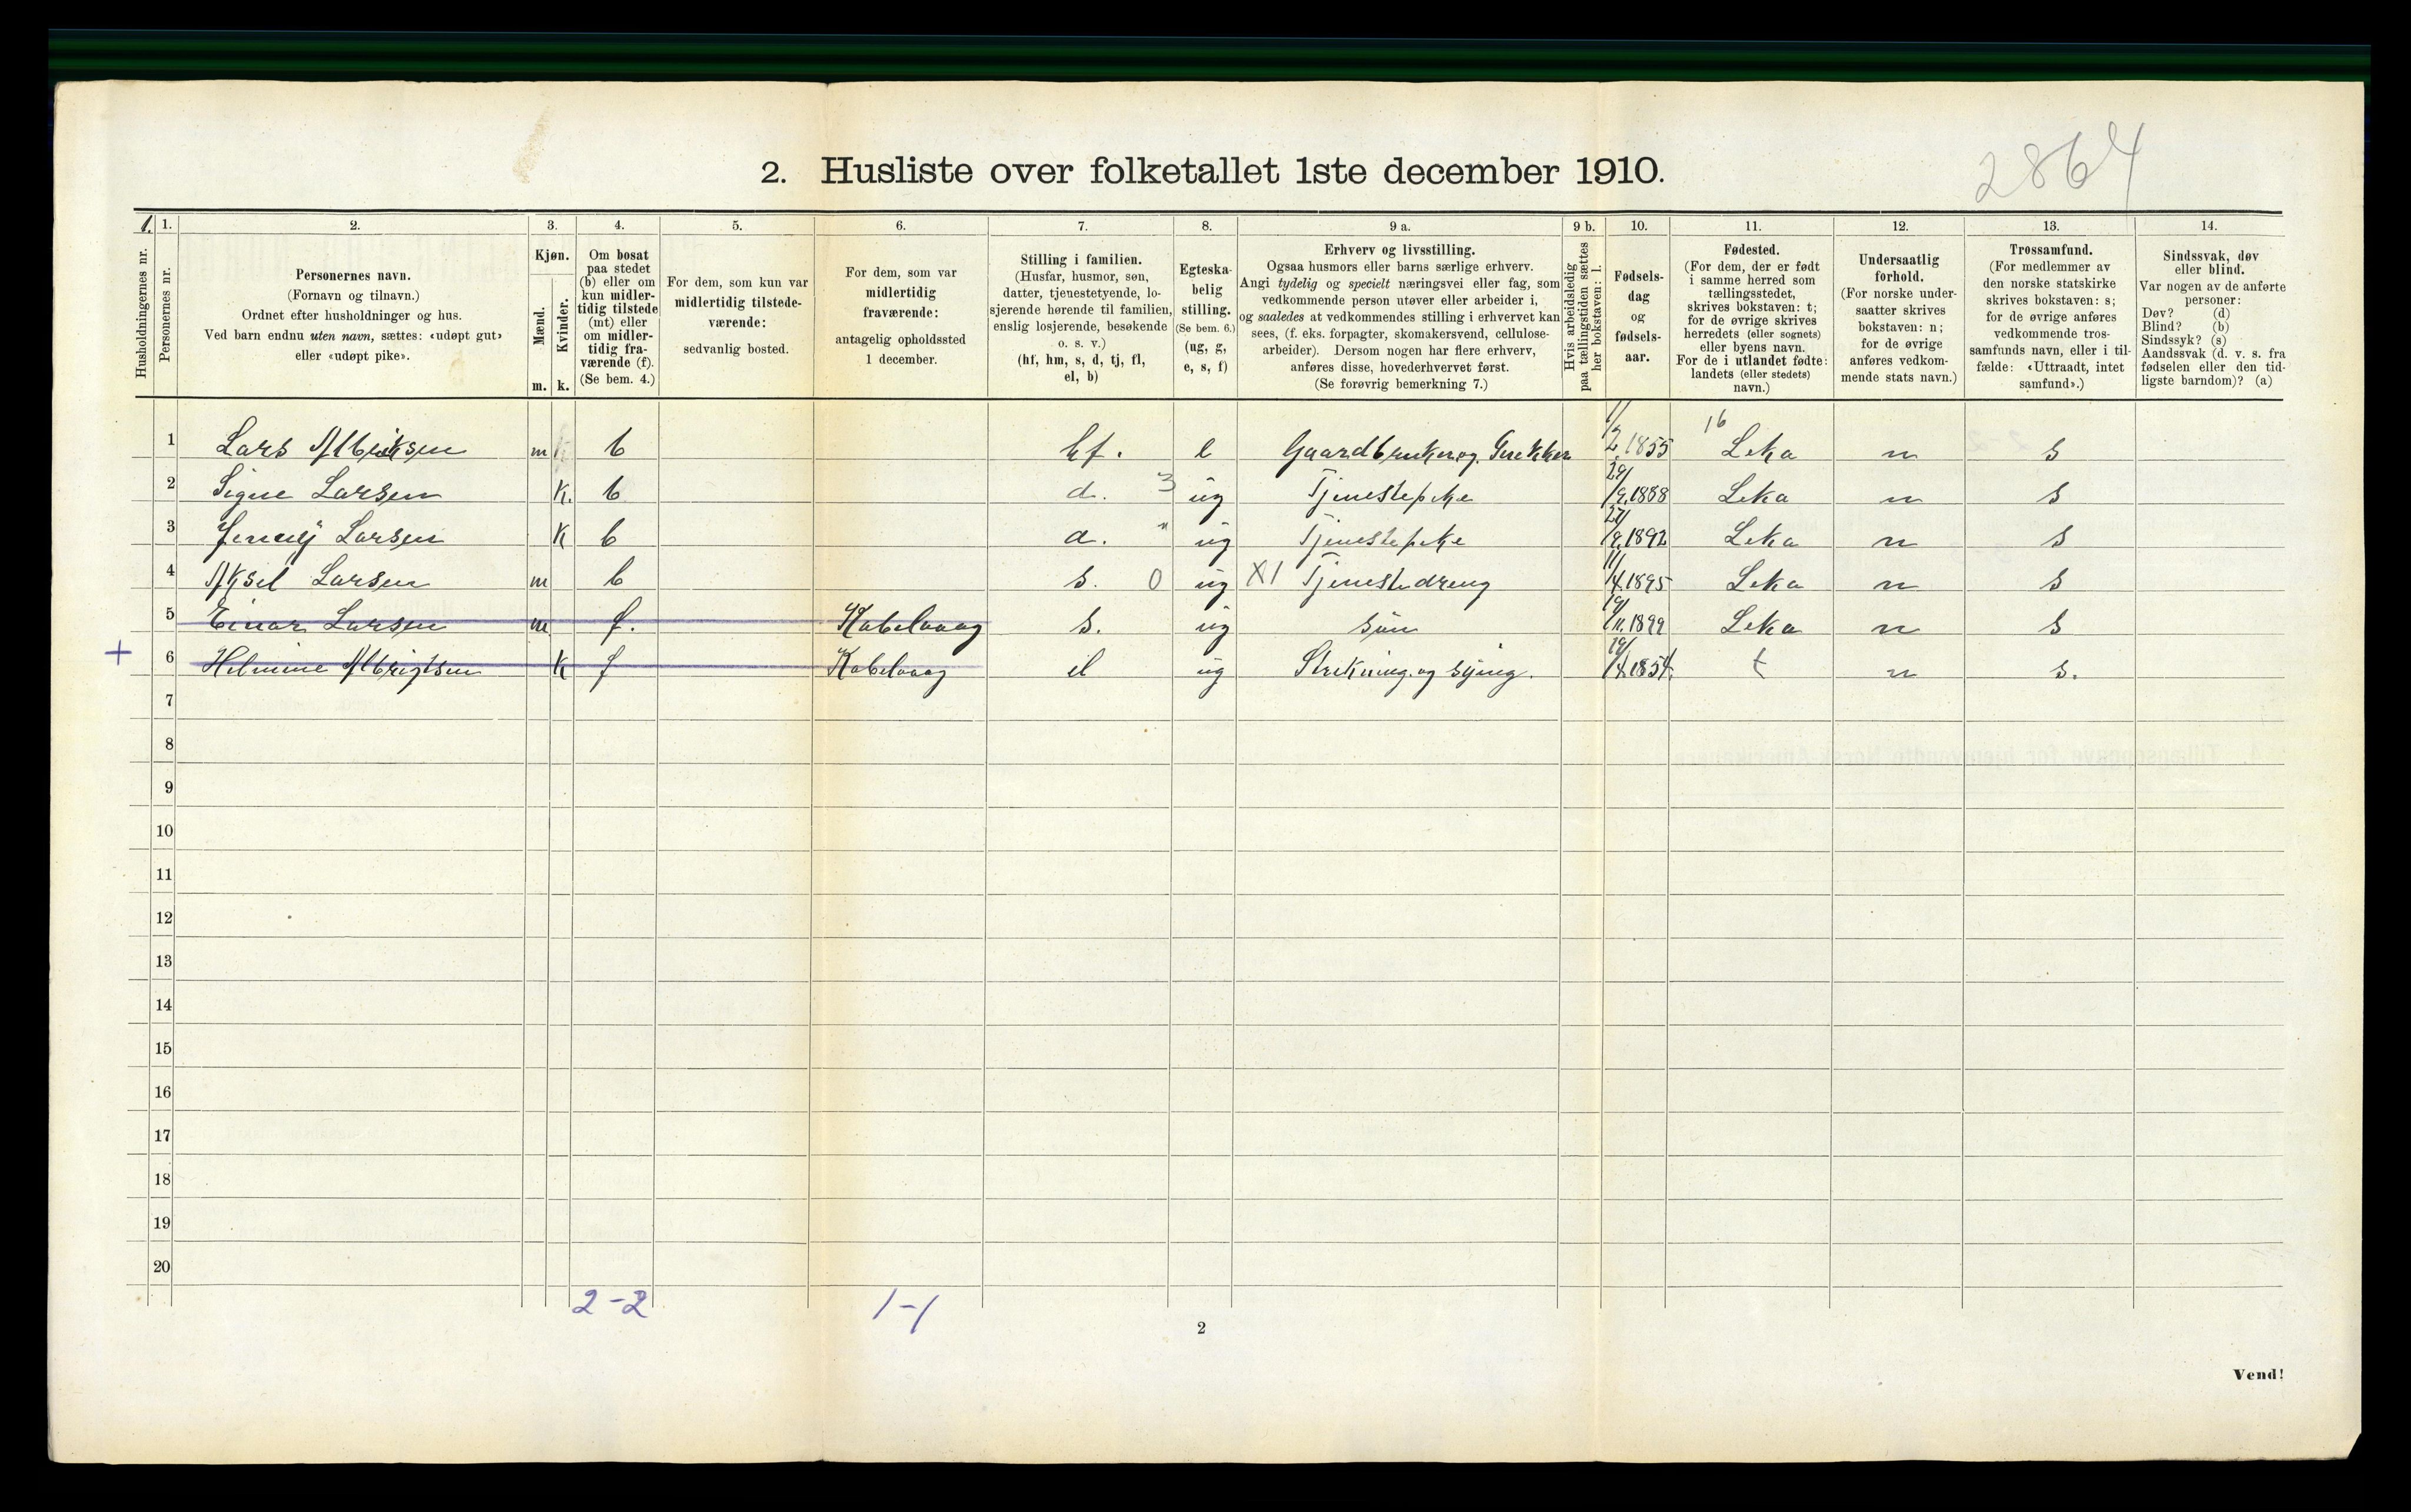 2. Husliste over folketallet 1ste december 1910.
2864
1. 1. 2. 3. 4. 5. 6. 7. 8. 9 a. 9 b. 10. 11. 12. 13. 14.
Husholdningernes nr.
Personernes nr.
Personernes navn.
(Fornavn og tilnavn.)
Ordnet efter husholdninger og hus.
Ved barn endnu uten navn, sættes: «udøpt gut»
eller «udøpt pike».
Kjøn.
Mænd.
Kvinder.
m. k.
Om bosat
paa stedet
(b) eller om
kun midler-
tidig tilstede
(mt) eller
om midler-
tidig fra-
værende (f).
(Se bem. 4.)
For dem, som kun var
midlertidig tilstede-
værende:
sedvanlig bosted.
For dem, som var
midlertidig
fraværende:
antagelig opholdssted
1 december.
Stilling i familien.
(Husfar, husmor, søn,
datter, tjenestetyende, lo-
sjerende hørende til familien,
enslig losjerende, besøkende
o. s. v.)
(hf, hm, s, d, tj, fl,
el, b)
Egteska-
belig
stilling.
(Se bem. 6.)
(ug, g,
e, s, f)
Erhverv og livsstilling.
Ogsaa husmors eller barns særlige erhverv.
Angi tydelig og specielt næringsvei eller fag, som
vedkommende person utøver eller arbeider i,
og saaledes at vedkommendes stilling i erhvervet kan
sees, (f. eks. forpagter, skomakersvend, cellulose-
arbeider). Dersom nogen har flere erhverv,
anføres disse, hovederhvervet først.
(Se forøvrig bemerkning 7.)
Hvis arbeidsledig
paa tællingstiden sættes
her bokstaven: l.
Fødsels-
dag
og
fødsels-
aar.
Fødested.
(For dem, der er født
i samme herred som
tællingsstedet,
skrives bokstaven: t;
for de øvrige skrives
herredets (eller sognets)
eller byens navn.
For de i utlandet fødte:
landets (eller stedets)
navn.)
Undersaatlig
forhold.
(For norske under-
saatter skrives
bokstaven: n;
for de øvrige
anføres vedkom-
mende stats navn.)
Trossamfund.
(For medlemmer av
den norske statskirke
skrives bokstaven: s;
for de øvrige anføres
vedkommende tros-
samfunds navn, eller i til-
fælde: «Uttraadt, intet
samfund».)
Sindssvak, døv
eller blind.
Var nogen av de anførte
personer:
Døv? (d)
Blind? (b)
Sindssyk? (s)
Aandssvak (d. v. s. fra
fødselen eller den tid-
ligste barndom)? (a)
16
1 Lars Albriksen m b hf. e Gaardbruker og 1/2 1855 Leka n s
2 Signe Larsen K. b d. 3 ug Tjenestepike 29/9 1888 Leka n s
3 Jenny Larsen K b d. " ug Tjenestepike 27/9 1892 Leka n s
4 Aksel Larsen m b s. 0 ug X1 Tjenestedreng 11/4 1895 Leka n s
5 Einar Larsen m f. Kabelvaag s. ug sün 19/11 1899 Leka n s
+ 6 Helmine Albrigtsen K f Kabelvaag el ug Strikning og sying. 19/4 1854 t n s.
7
8
9
10
11
12
13
14
15
16
17
18
19
20
2-2 1-1
2
Vend!